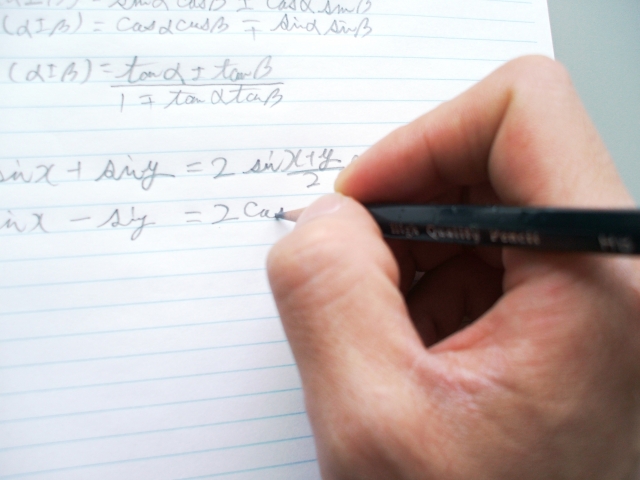 (α±β) = sinα cosβ ± cosα sinβ
(α±β) = cosαcosβ ∓ sinα sinβ
(α±β) = tanα ± tanβ / 1 ∓ tanαtanβ
sinx + siny = 2 sin x+y/2
inx - siny = 2 cos
High Quality Pencil